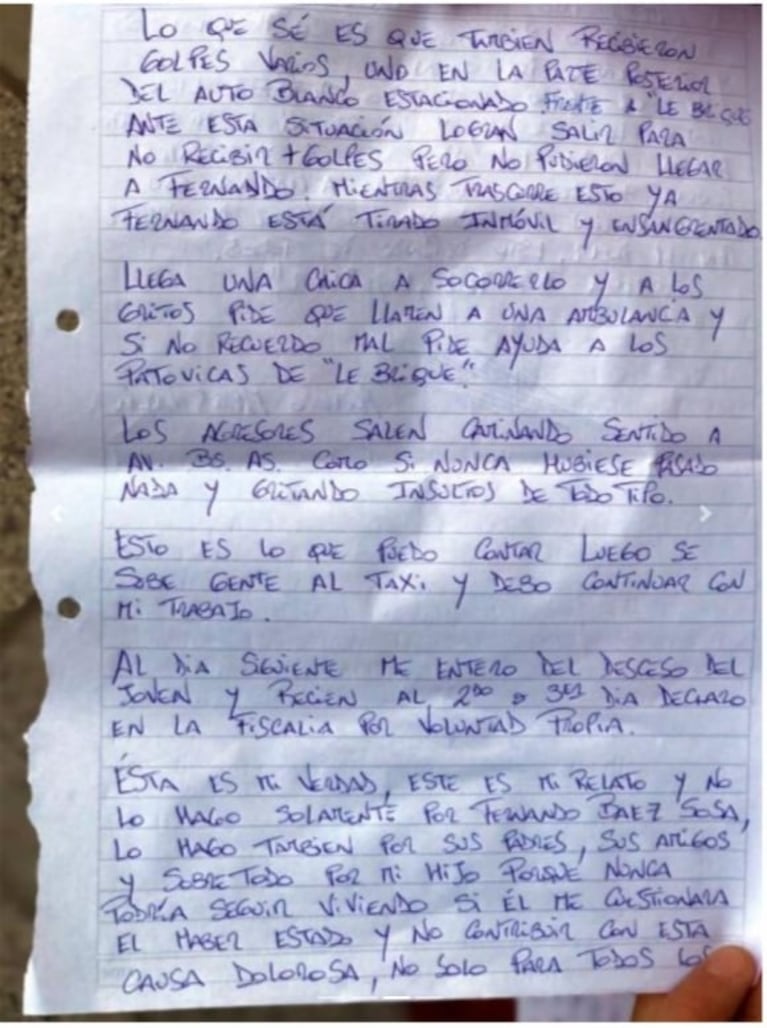 LO QUE SÉ ES QUE TAMBIEN RECIBIERON
GOLPES VARIOS, UNO EN LA PATE POSTERIOR
DEL AUTO BLANCO ESTACIONADO FRENTE A "LE BRIQUE
ANTE ESTA SITUACIÓN LOGRAN SALIR PARA
NO RECIBIR + GOLPES PERO NO PUDIERON LLEGAR
A FERNANDO. MIENTRAS TRASCURRE ESTO YA
FERNANDO ESTÁ TIRADO INMÓVIL Y ENSANGRENTADO.
LLEGA UNA CHICA A SOCORRERLO Y A LOS
GRITOS PIDE QUE LLAMEN A UNA AMBULANCIA Y
SI NO RECUERDO MAL PIDE AYUDA A LOS
PATOVICAS DE "LE BRIQUE"
LOS AGRESORES SALEN CAMINANDO SENTIDO A
AV. BS. AS. COMO SI NUNCA HUBIESE PASADO
NADA Y GRITANDO INSULTOS DE TODO TIPO.
ESTO ES LO QUE PUEDO CONTAR LUEGO SE
SUBE GENTE AL TAXI Y DEBO CONTINUAR CON
MI TRABAJO.
AL DIA SIGUIENTE ME ENTERO DEL DESCESO DEL
JOVEN Y RECIEN AL 2DO o 3ER DIA DECLARO
EN LA FISCALIA POR VOLUNTAD PROPIA.
ÉSTA ES MI VERDAD, ESTE ES MI RELATO Y NO
LO HAGO SOLAMENTE POR FERNANDO BAEZ SOSA,
LO HAGO TAMBIEN POR SUS PADRES, SUS AMIGOS
Y SOBRE TODO POR MI HIJO PORQUE NUNCA
PODRÍA SEGUIR VIVIENDO SI ÉL ME CUESTIONARA
EL HABER ESTADO Y NO CONTRIBUIR CON ESTA
CAUSA DOLOROSA, NO SOLO PARA TODOS LOS